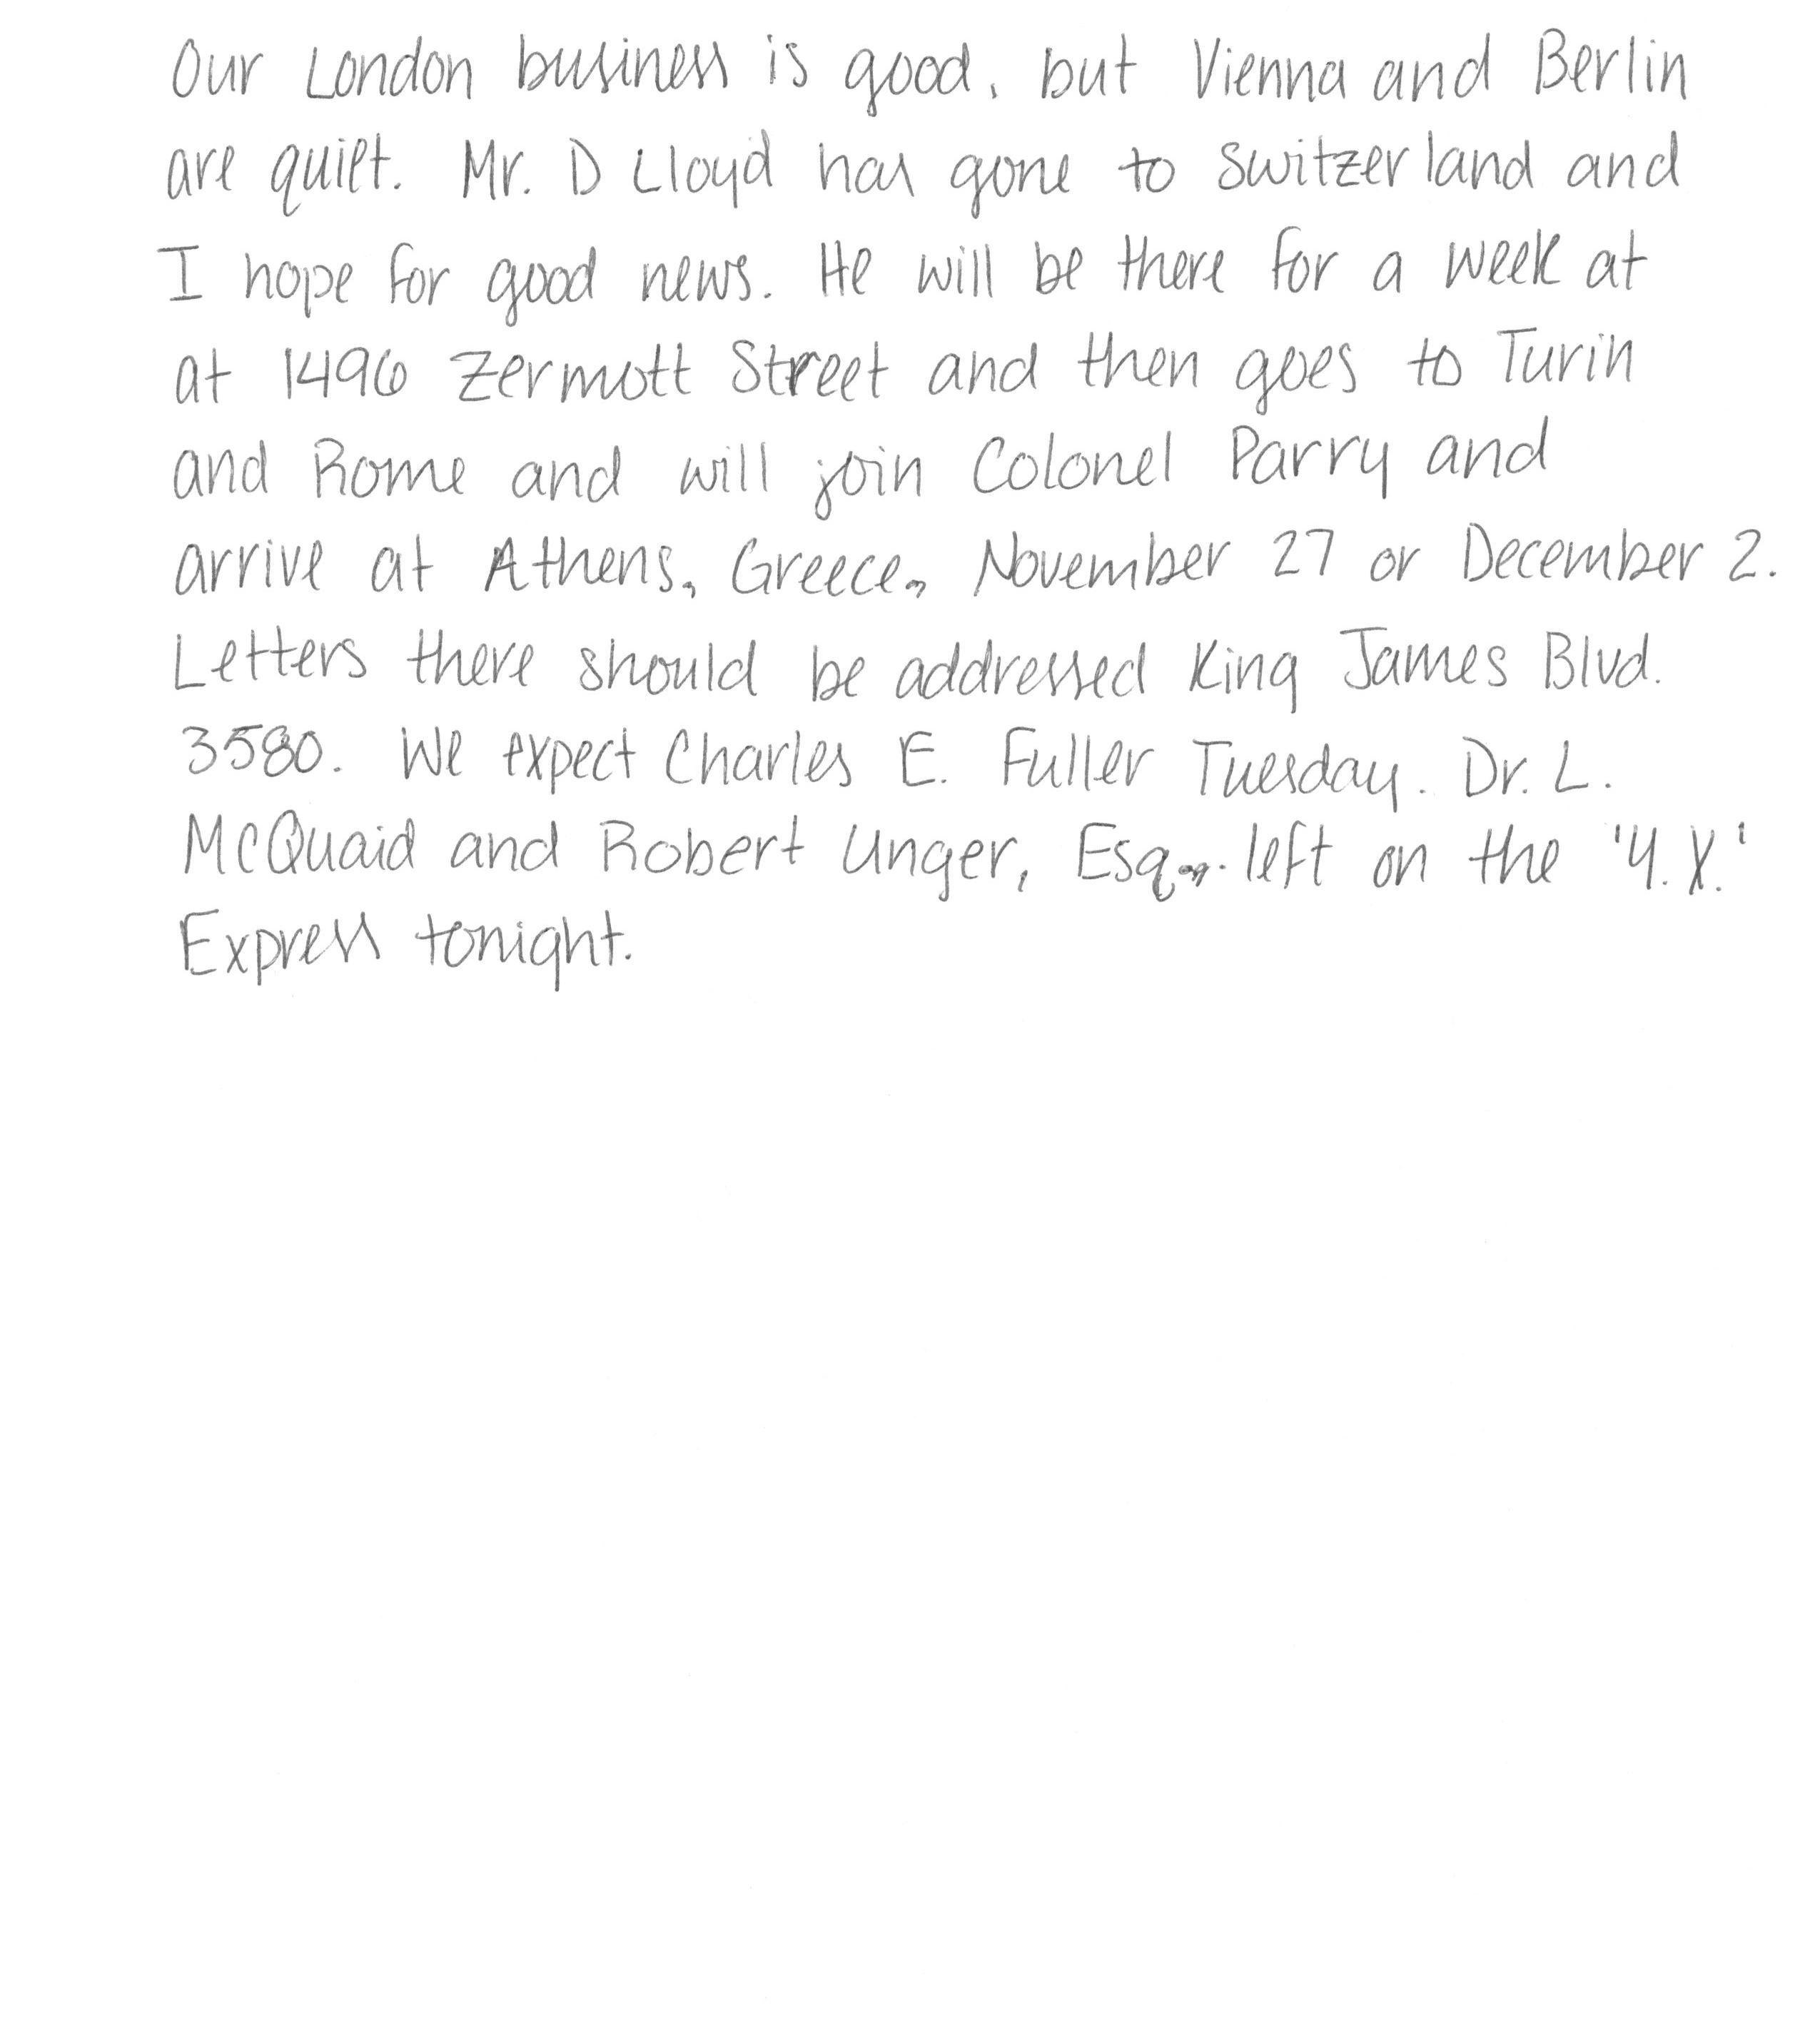 Our London business is good, but Vienna and Berlin
are quiet. Mr. D Lloyd has gone to Switzerland and
I hope for good news. He will be there for a week at
at 1496 Zermott Street and then goes to Turin
and Rome and will join Colonel Parry and
arrive at Athens, Greece, November 27 or December 2.
Letters there should be addressed King James Blvd.
3580. We expect Charles E. Fuller Tuesday. Dr. L.
McQuaid and Robert Unger, Esq., left on the 'Y.X.'
Express tonight.